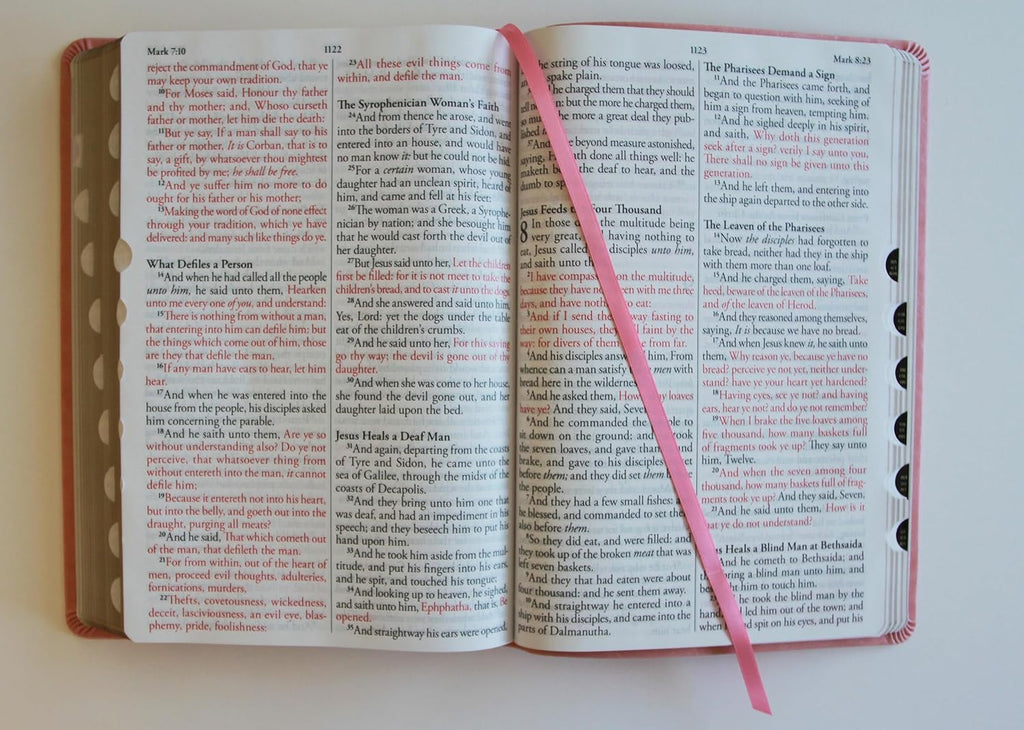 Mark 7:10
1122
reject the commandment of God, that ye
may keep your own tradition.
10For Moses said, Honour thy father
and thy mother; and, Whoso curseth
father or mother, let him die the death:
11But ye say, If a man shall say to his
father or mother, It is Corban, that is to
say, a gift, by whatsoever thou mightest
be profited by me; he shall be free.
12And ye suffer him no more to do
ought for his father or his mother;
13Making the word of God of none effect
through your tradition, which ye have
delivered: and many such like things do ye.
What Defiles a Person
14And when he had called all the people
unto him, he said unto them, Hearken
unto me every one of you, and understand:
15There is nothing from without a man,
that entering into him can defile him: but
the things which come out of him, those
are they that defile the man.
16If any man have ears to hear, let him
hear.
17And when he was entered into the
house from the people, his disciples asked
him concerning the parable.
18And he saith unto them, Are ye so
without understanding also? Do ye not
perceive, that whatsoever thing from
without entereth into the man, it cannot
defile him;
19Because it entereth not into his heart,
but into the belly, and goeth out into the
draught, purging all meats?
20And he said, That which cometh out
of the man, that defileth the man.
21For from within, out of the heart of
men, proceed evil thoughts, adulteries,
fornications, murders,
22Thefts, covetousness, wickedness,
deceit, lasciviousness, an evil eye, blas-
phemy, pride, foolishness:
23All these evil things come from
within, and defile the man.
The Syrophenician Woman's Faith
24And from thence he arose, and went
into the borders of Tyre and Sidon, and
entered into an house, and would have
no man know it: but he could not be hid.
25For a certain woman, whose young
daughter had an unclean spirit, heard of
him, and came and fell at his feet:
26The woman was a Greek, a Syrophe-
nician by nation; and she besought him
that he would cast forth the devil out of
her daughter.
27But Jesus said unto her, Let the children
first be filled: for it is not meet to take the
children's bread, and to cast it unto the dogs.
28And she answered and said unto him,
Yes, Lord: yet the dogs under the table
eat of the children's crumbs.
29And he said unto her, For this saying
go thy way; the devil is gone out of thy
daughter.
30And when she was come to her house,
she found the devil gone out, and her
daughter laid upon the bed.
Jesus Heals a Deaf Man
31And again, departing from the coasts
of Tyre and Sidon, he came unto the
sea of Galilee, through the midst of the
coasts of Decapolis.
32And they bring unto him one that
was deaf, and had an impediment in his
speech; and they beseech him to put his
hand upon him.
33And he took him aside from the mul-
titude, and put his fingers into his ears,
and he spit, and touched his tongue;
34And looking up to heaven, he sighed,
and saith unto him, Ephphatha, that is, Be
opened.
35And straightway his ears were opened,
1123
Mark 8:23
the string of his tongue was loosed,
spake plain.
he charged them that they should
tell no but the more he charged them,
so the more a great deal they pub-
lished
And beyond measure astonished,
saying, He hath done all things well: he
maketh the deaf to hear, and the
dumb to
Jesus Feeds Four Thousand
8 In those the multitude being
very great, having nothing to
eat, Jesus called disciples unto him,
and saith unto
2I have compassion on the multitude,
because they have been with me three
days, and have nothing to eat:
3And if I send them away fasting to
their own houses, they will faint by the
way: for divers of them came from far.
4And his disciples answered him, From
whence can a man satisfy men with
bread here in the wilderness
5And he asked them, How many loaves
have ye? And they said, Seven.
6And he commanded the people to
sit down on the ground: and took
the seven loaves, and gave thanks, and
brake, and gave to his disciples set
before them; and they did set them before
the people.
7And they had a few small fishes:
he blessed, and commanded to set them
also before them.
8So they did eat, and were filled: and
they took up of the broken meat that was
left seven baskets.
9And they that had eaten were about
four thousand: and he sent them away.
10And straightway he entered into a
ship with his disciples, and came into the
parts of Dalmanutha.
The Pharisees Demand a Sign
11And the Pharisees came forth, and
began to question with him, seeking of
him a sign from heaven, tempting him.
12And he sighed deeply in his spirit,
and saith, Why doth this generation
seek after a sign? verily I say unto you,
There shall no sign be given unto this
generation.
13And he left them, and entering into
the ship again departed to the other side.
The Leaven of the Pharisees
14Now the disciples had forgotten to
take bread, neither had they in the ship
with them more than one loaf.
15And he charged them, saying, Take
heed, beware of the leaven of the Pharisees,
and of the leaven of Herod.
16And they reasoned among themselves,
saying, It is because we have no bread.
17And when Jesus knew it, he saith unto
them, Why reason ye, because ye have no
bread? perceive ye not yet, neither under-
stand? have ye your heart yet hardened?
18Having eyes, see ye not? and having
ears, hear ye not? and do ye not remember?
19When I brake the five loaves among
five thousand, how many baskets full
of fragments took ye up? They say unto
him, Twelve.
20And when the seven among four
thousand, how many baskets full of frag-
ments took ye up? And they said, Seven.
21And he said unto them, How is it
that ye do not understand?
Heals a Blind Man at Bethsaida
he cometh to Bethsaida; and
bring a blind man unto him, and
him to touch him.
he took the blind man by the
hand, led him out of the town; and
when spit on his eyes, and put his